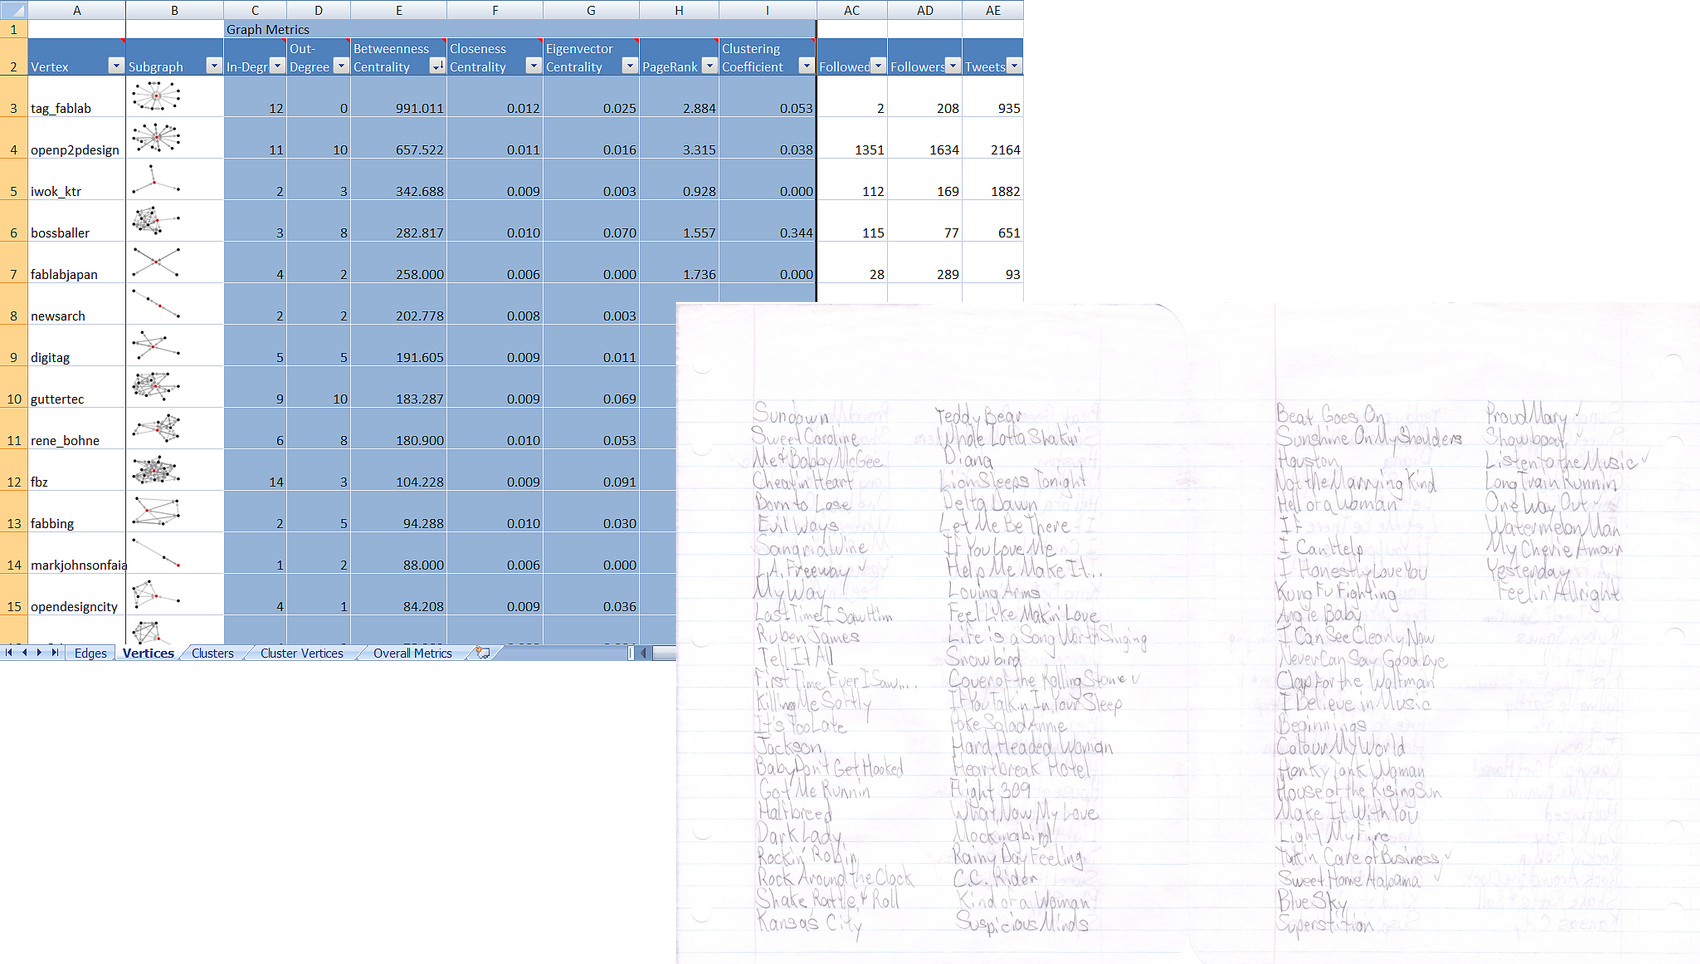 A B C D E F G H I AC AD AE
1 Graph Metrics
2 Vertex Subgraph In-Degr Out-Degree Betweenness Centrality Closeness Centrality Eigenvector Centrality PageRank Clustering Coefficient Followed Followers Tweets
3 tag_fablab 12 0 991.011 0.012 0.025 2.884 0.053 2 208 935
4 openp2pdesign 11 10 657.522 0.011 0.016 3.315 0.038 1351 1634 2164
5 iwok_ktr 2 3 342.688 0.009 0.003 0.928 0.000 112 169 1882
6 bossballer 3 8 282.817 0.010 0.070 1.557 0.344 115 77 651
7 fablabjapan 4 2 258.000 0.006 0.000 1.736 0.000 28 289 93
8 newsarch 2 2 202.778 0.008 0.003
9 digitag 5 5 191.605 0.009 0.011
10 guttertec 9 10 183.287 0.009 0.069
11 rene_bohne 6 8 180.900 0.010 0.053
12 fbz 14 3 104.228 0.009 0.091
13 fabbing 2 5 94.288 0.010 0.030
14 markjohnsonfaia 1 2 88.000 0.006 0.000
15 opendesigncity 4 1 84.208 0.009 0.036
Edges Vertices Clusters Cluster Vertices Overall Metrics
Sundown
Sweet Caroline
Me & Bobby McGee
Cheatin' Heart
Born to Lose
Evil Ways
Sangria Wine
L.A. Freeway
My Way
Last Time I Saw Him
Ruben James
Tell It All
First Time Ever I Saw...
Killing Me Softly
It's Too Late
Jackson
Baby Don't Get Hooked
Got Me Runnin
Halfbreed
Dark Lady
Rockin' Robin
Rock Around the Clock
Shake Rattle & Roll
Kansas City
Teddy Bear
Whole Lotta Shakin'
Diana
Lion Sleeps Tonight
Delta Dawn
Let Me Be There
If You Love Me
Help Me Make It...
Loving Arms
Feel Like Makin' Love
Life is a Song Worth Singing
Snowbird
Cover of the Rolling Stone
If You Talk in Your Sleep
Poke Salad Annie
Hard Headed Woman
Heartbreak Hotel
Flight 309
What Now My Love
Mockingbird
Rainy Day Feeling
C.C. Rider
Kind of a Woman
Suspicious Minds
Beat Goes On
Sunshine On My Shoulders
Houston
Not the Marrying Kind
Hell of a Woman
If
I Can Help
I Honestly Love You
Kung Fu Fighting
Angie Baby
I Can See Clearly Now
Never Can Say Goodbye
Clap For the Wolfman
I Believe in Music
Beginnings
Colour My World
Honky Tonk Woman
House of the Rising Sun
Make It With You
Light My Fire
Takin' Care of Business
Sweet Home Alabama
Blue Sky
Superstition
Proud Mary
Showboat
Listen to the Music
Long Train Runnin
One Way Out
Watermelon Man
My Cherie Amour
Yesterday
Feelin' Alright